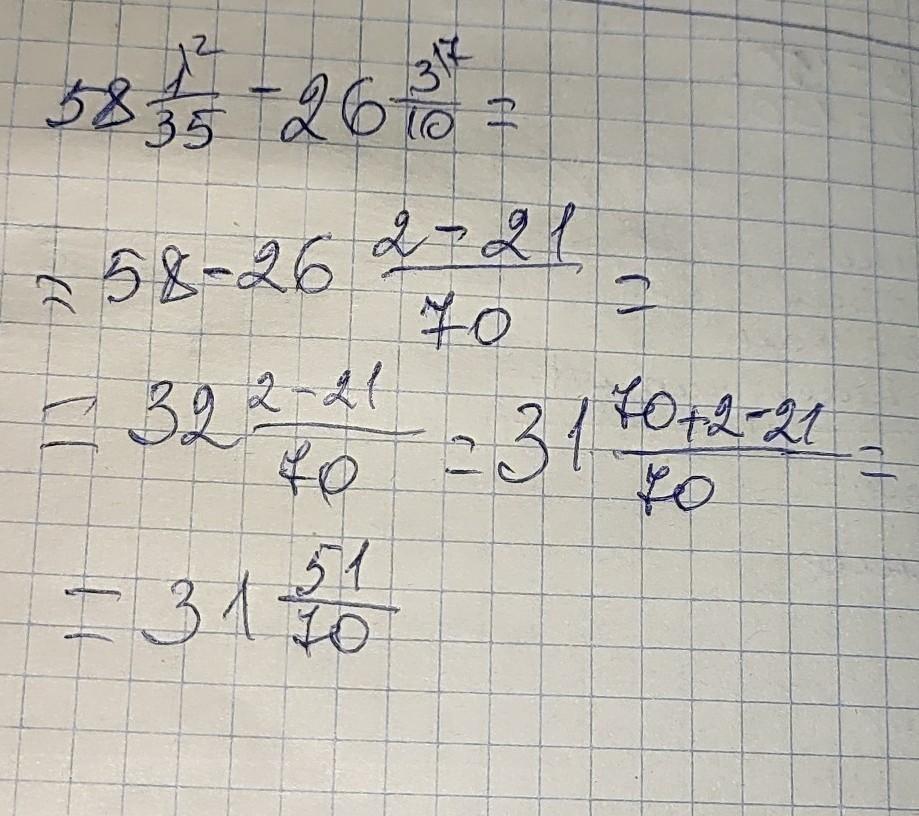 58 1\2/35 - 26 3\7/10 =
= 58 - 26 2 - 21/70 =
= 32 2 - 21/70 = 31 70 + 2 - 21/70 =
= 31 51/70